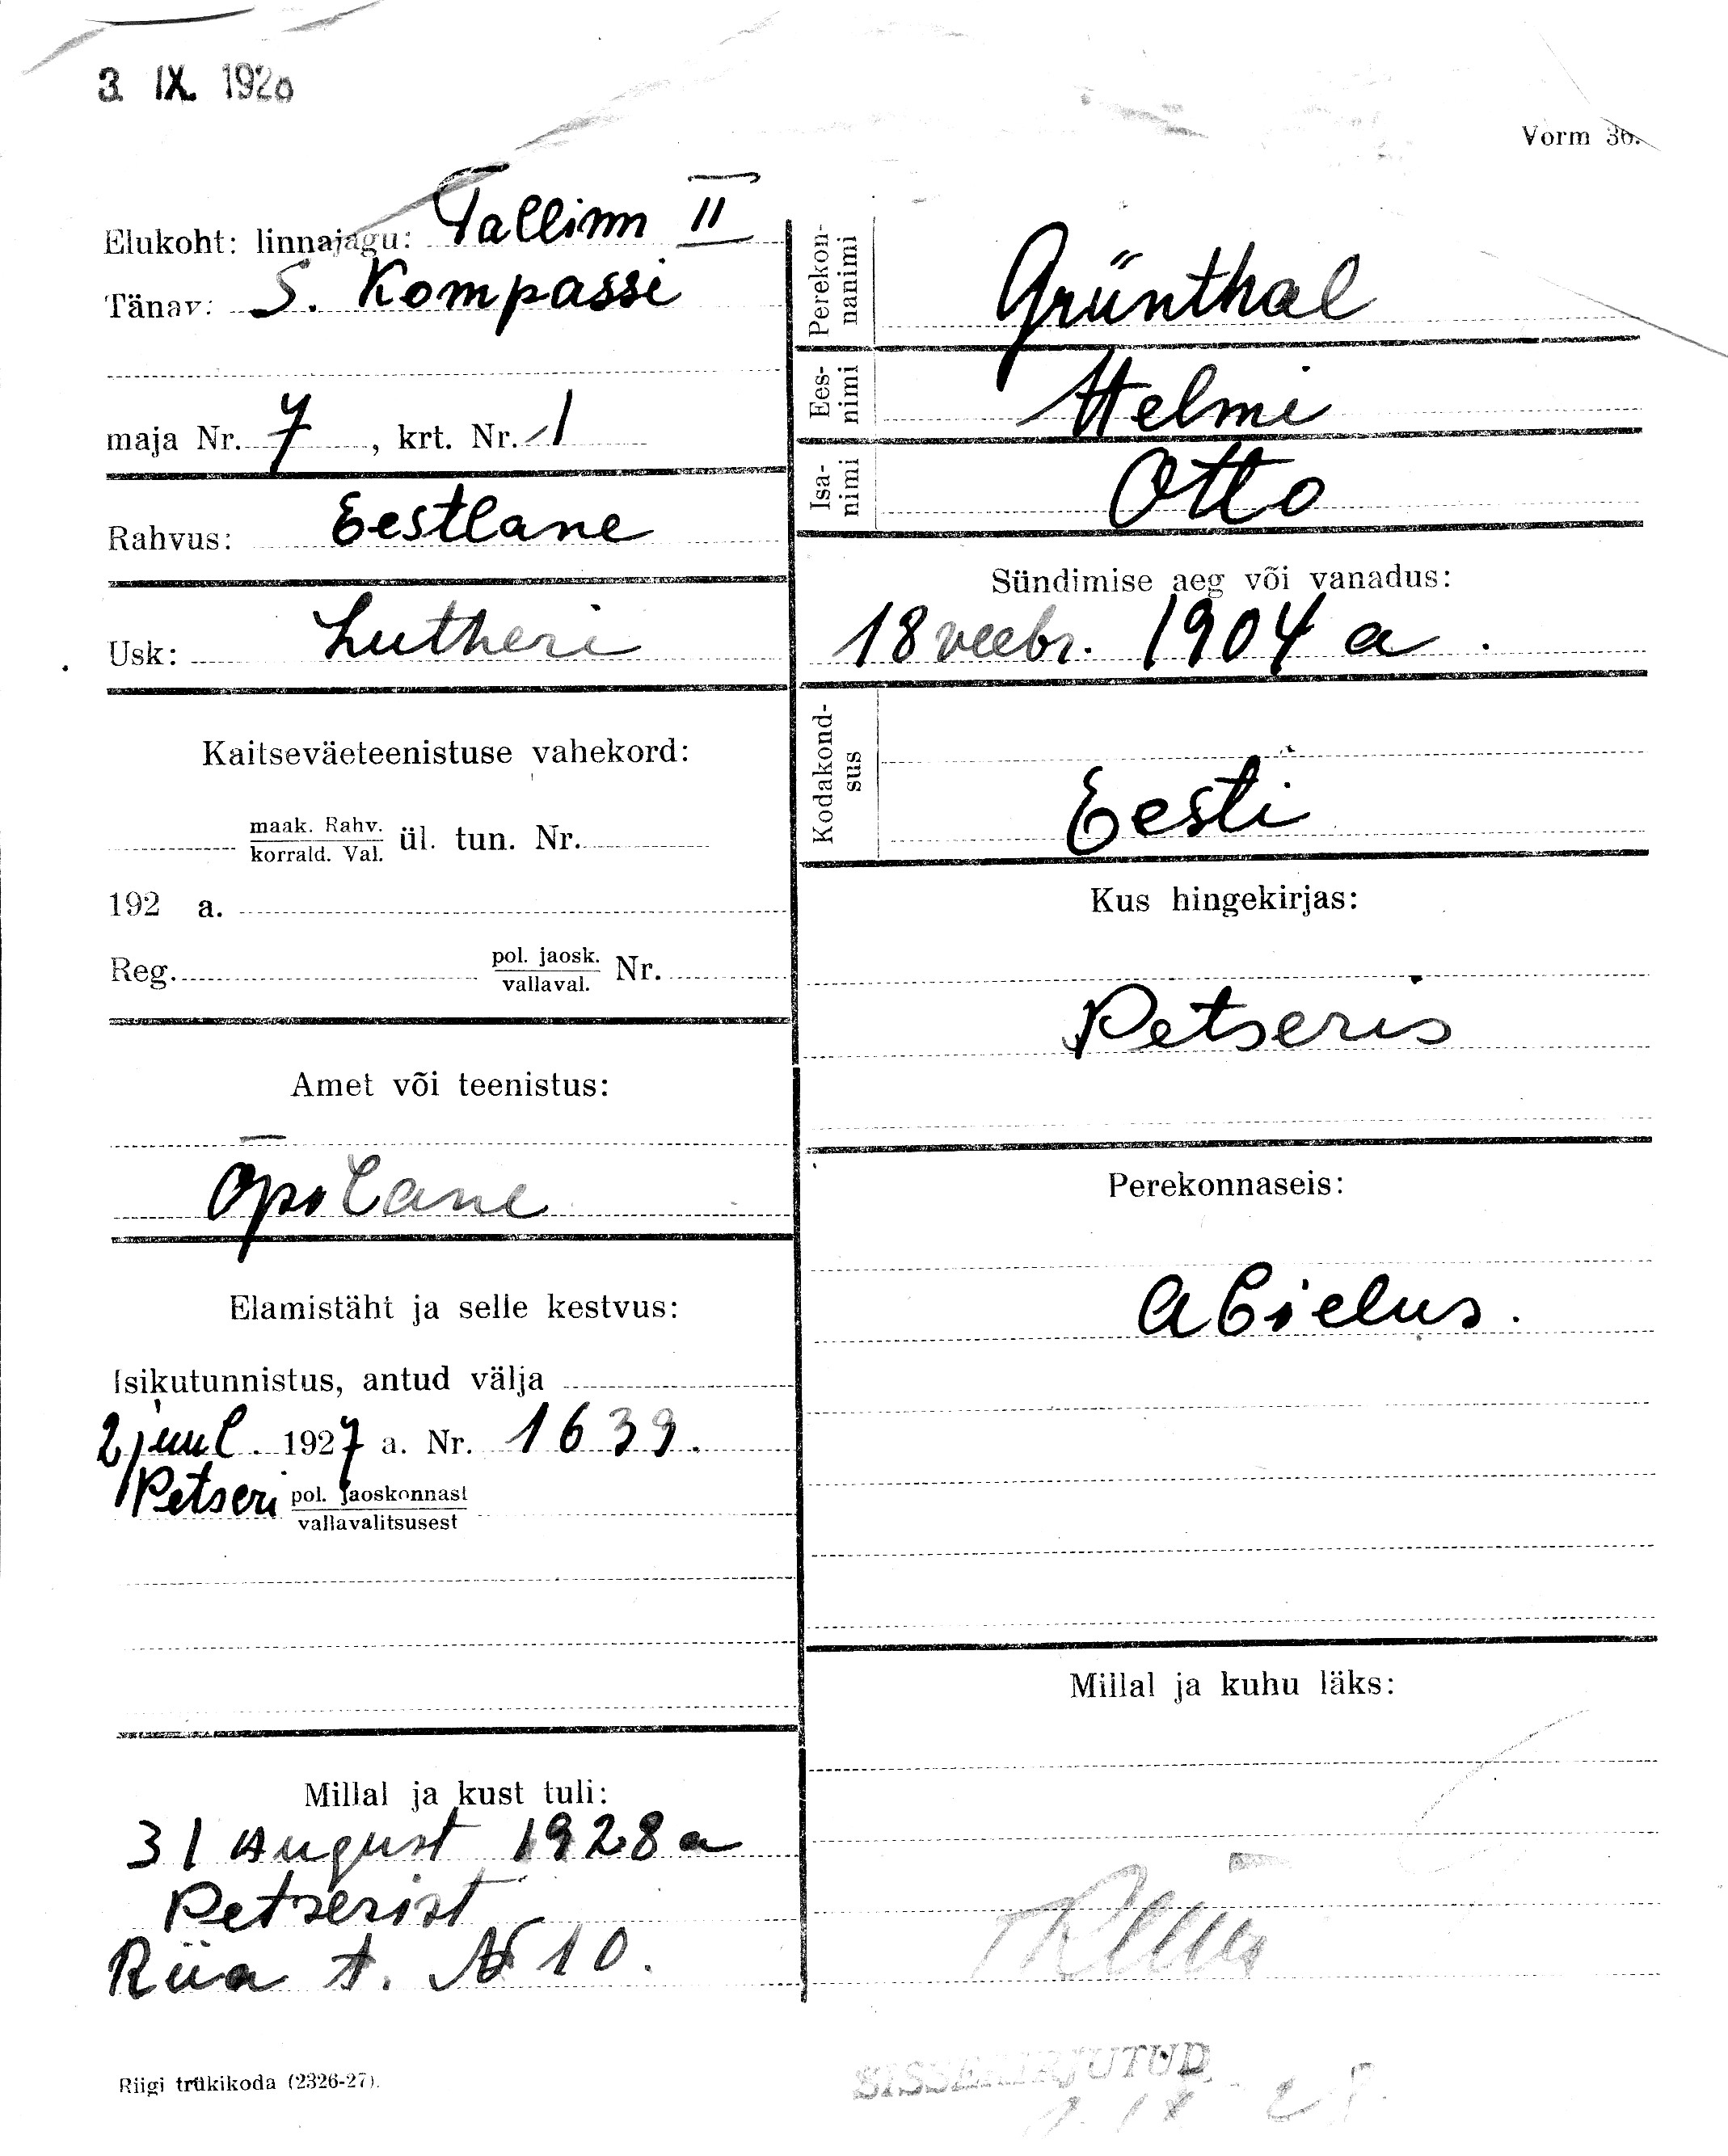 3. IX. 192
Vorm 36.
Elukoht: linnajagu: Tallinn II
Tänav: S. Kompassi
maja Nr. 7, krt. Nr. 1
Rahvus: Eestlane
Usk: Lutheri
Kaitseväeteenistuse vahekord:
maak. Rahv.
korrald. Val. ül. tun. Nr.
192 a.
Reg. pol. jaosk.
vallaval. Nr.
Amet või teenistus:
Õpilane
Elamistäht ja selle kestvus:
Isikutunnistus, antud välja
2 juul. 1927 a. Nr. 1639.
Petseri pol. jaoskonnast
vallavalitsusest
Millal ja kust tuli:
31 August 1928 a
Petserist
Riia t. № 10.
Riigi trükikoda (2326-27).
Perekonnanimi
Grünthal
Eesnimi
Helmi
Isanimi
Otto
Sündimise aeg või vanadus:
18 veebr. 1904 a.
Kodakondsus
Eesti
Kus hingekirjas:
Petseris
Perekonnaseis:
Abielus.
Millal ja kuhu läks:
SISSEKIRJUTUD